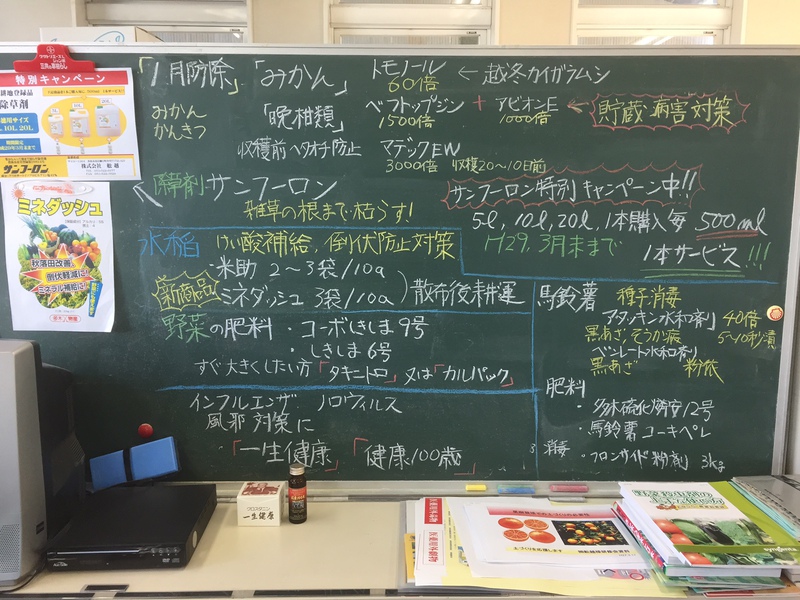 「1月防除」「みかん」 トモノール 60倍 ← 越冬カイガラムシ
みかん
かんきつ
「晩柑類」
ベフトップジン 1500倍 + アビオンE 1000倍 ← 貯蔵・病害対策
収穫前ヘタオチ防止 マデックEW 3000倍 収穫20〜10日前
除草剤 サンフーロン
雑草の根まで枯らす!
サンフーロン特別キャンペーン中!!
5l, 10l, 20l, 1本購入毎 500ml
H29. 3月末まで 1本サービス!!!
水稲 けい酸補給, 倒伏防止対策
・米助 2〜3袋/10a
新商品 ミネダッシュ 3袋/10a
散布後耕運
野菜の肥料 ・コーボきしま9号
・しきしま6号
すぐ大きくしたい方「タキニトロ」又は「カルパック」
インフルエンザ ノロウィルス
風邪 対策に
・「一生健康」「健康100歳」
馬鈴薯 種子消毒
アタッキン水和剤 40倍
黒あざ, そうか病 5〜10秒漬
ベンレート水和剤
黒あざ 粉依
肥料
・馬鈴薯コーキペレ
消毒 ・フロンサイド粉剤 3kg
特別キャンペーン
除草剤
10L, 20L
サンフーロン
ミネダッシュ
秋落田改善
倒伏軽減に
ミネラル補給に
一生健康